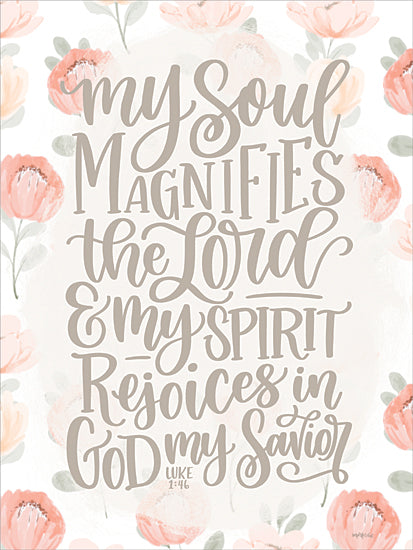 my Soul
MAGNIFIES
the Lord
& my SPIRIT
Rejoices in
GOD my Savior
LUKE
1:46